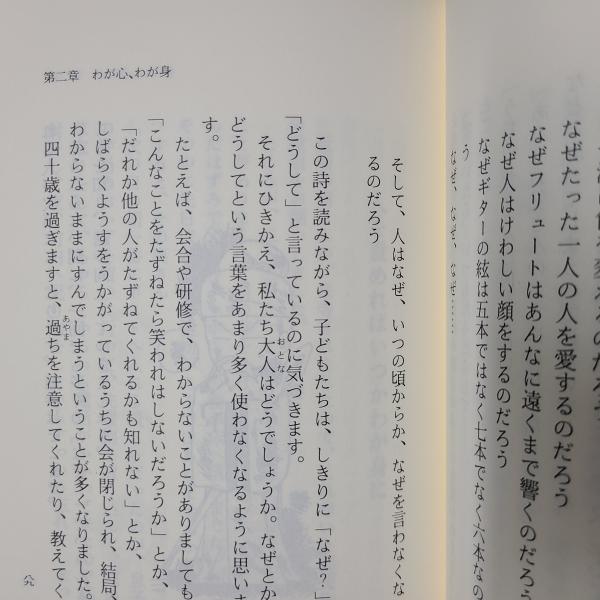 なぜたった一人の人を愛するのだろう
なぜフリュートはあんなに遠くまで響くのだろう
なぜ人はけわしい顔をするのだろう
なぜギターの絃は五本ではなく七本でなく六本なの
う
なぜ、なぜ、なぜ……
第二章 わが心、わが身
そして、人はなぜ、いつの頃からか、なぜを言わなくな
るのだろう
この詩を読みながら、子どもたちは、しきりに「なぜ?」
「どうして」と言っているのに気づきます。
それにひきかえ、私たち大人はどうでしょうか。なぜとか
おとな
どうしてという言葉をあまり多く使わなくなるように思いま
す。
たとえば、会合や研修で、わからないことがありましても
「こんなことをたずねたら笑われはしないだろうか」とか、
「だれか他の人がたずねてくれるかも知れない」とか、
しばらくようすをうかがっているうちに会が閉じられ、結局、
わからないままにすんでしまうということが多くなりました。
四十歳を過ぎますと、過ちを注意してくれたり、教えてく
あやま
八九